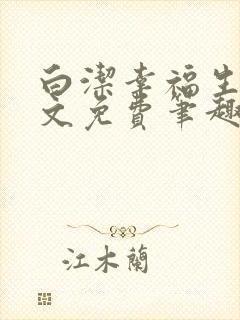 白潔幸福生
文免費筆趣
江木蘭